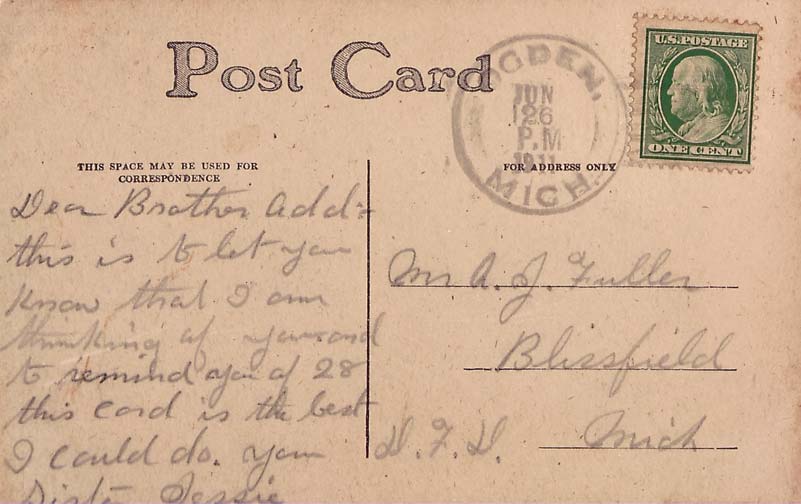 Post Card
OGDEN,
JUN
26
P.M
1911
MICH.
U.S. POSTAGE
ONE CENT
THIS SPACE MAY BE USED FOR
CORRESPONDENCE
FOR ADDRESS ONLY
Dear Brother Add=
this is to let you
know that I am
thinking of you and
to remind you of 28
this card is the best
I could do. your
Sister Jessie
Mr A. J. Fuller
Blissfield
Mich